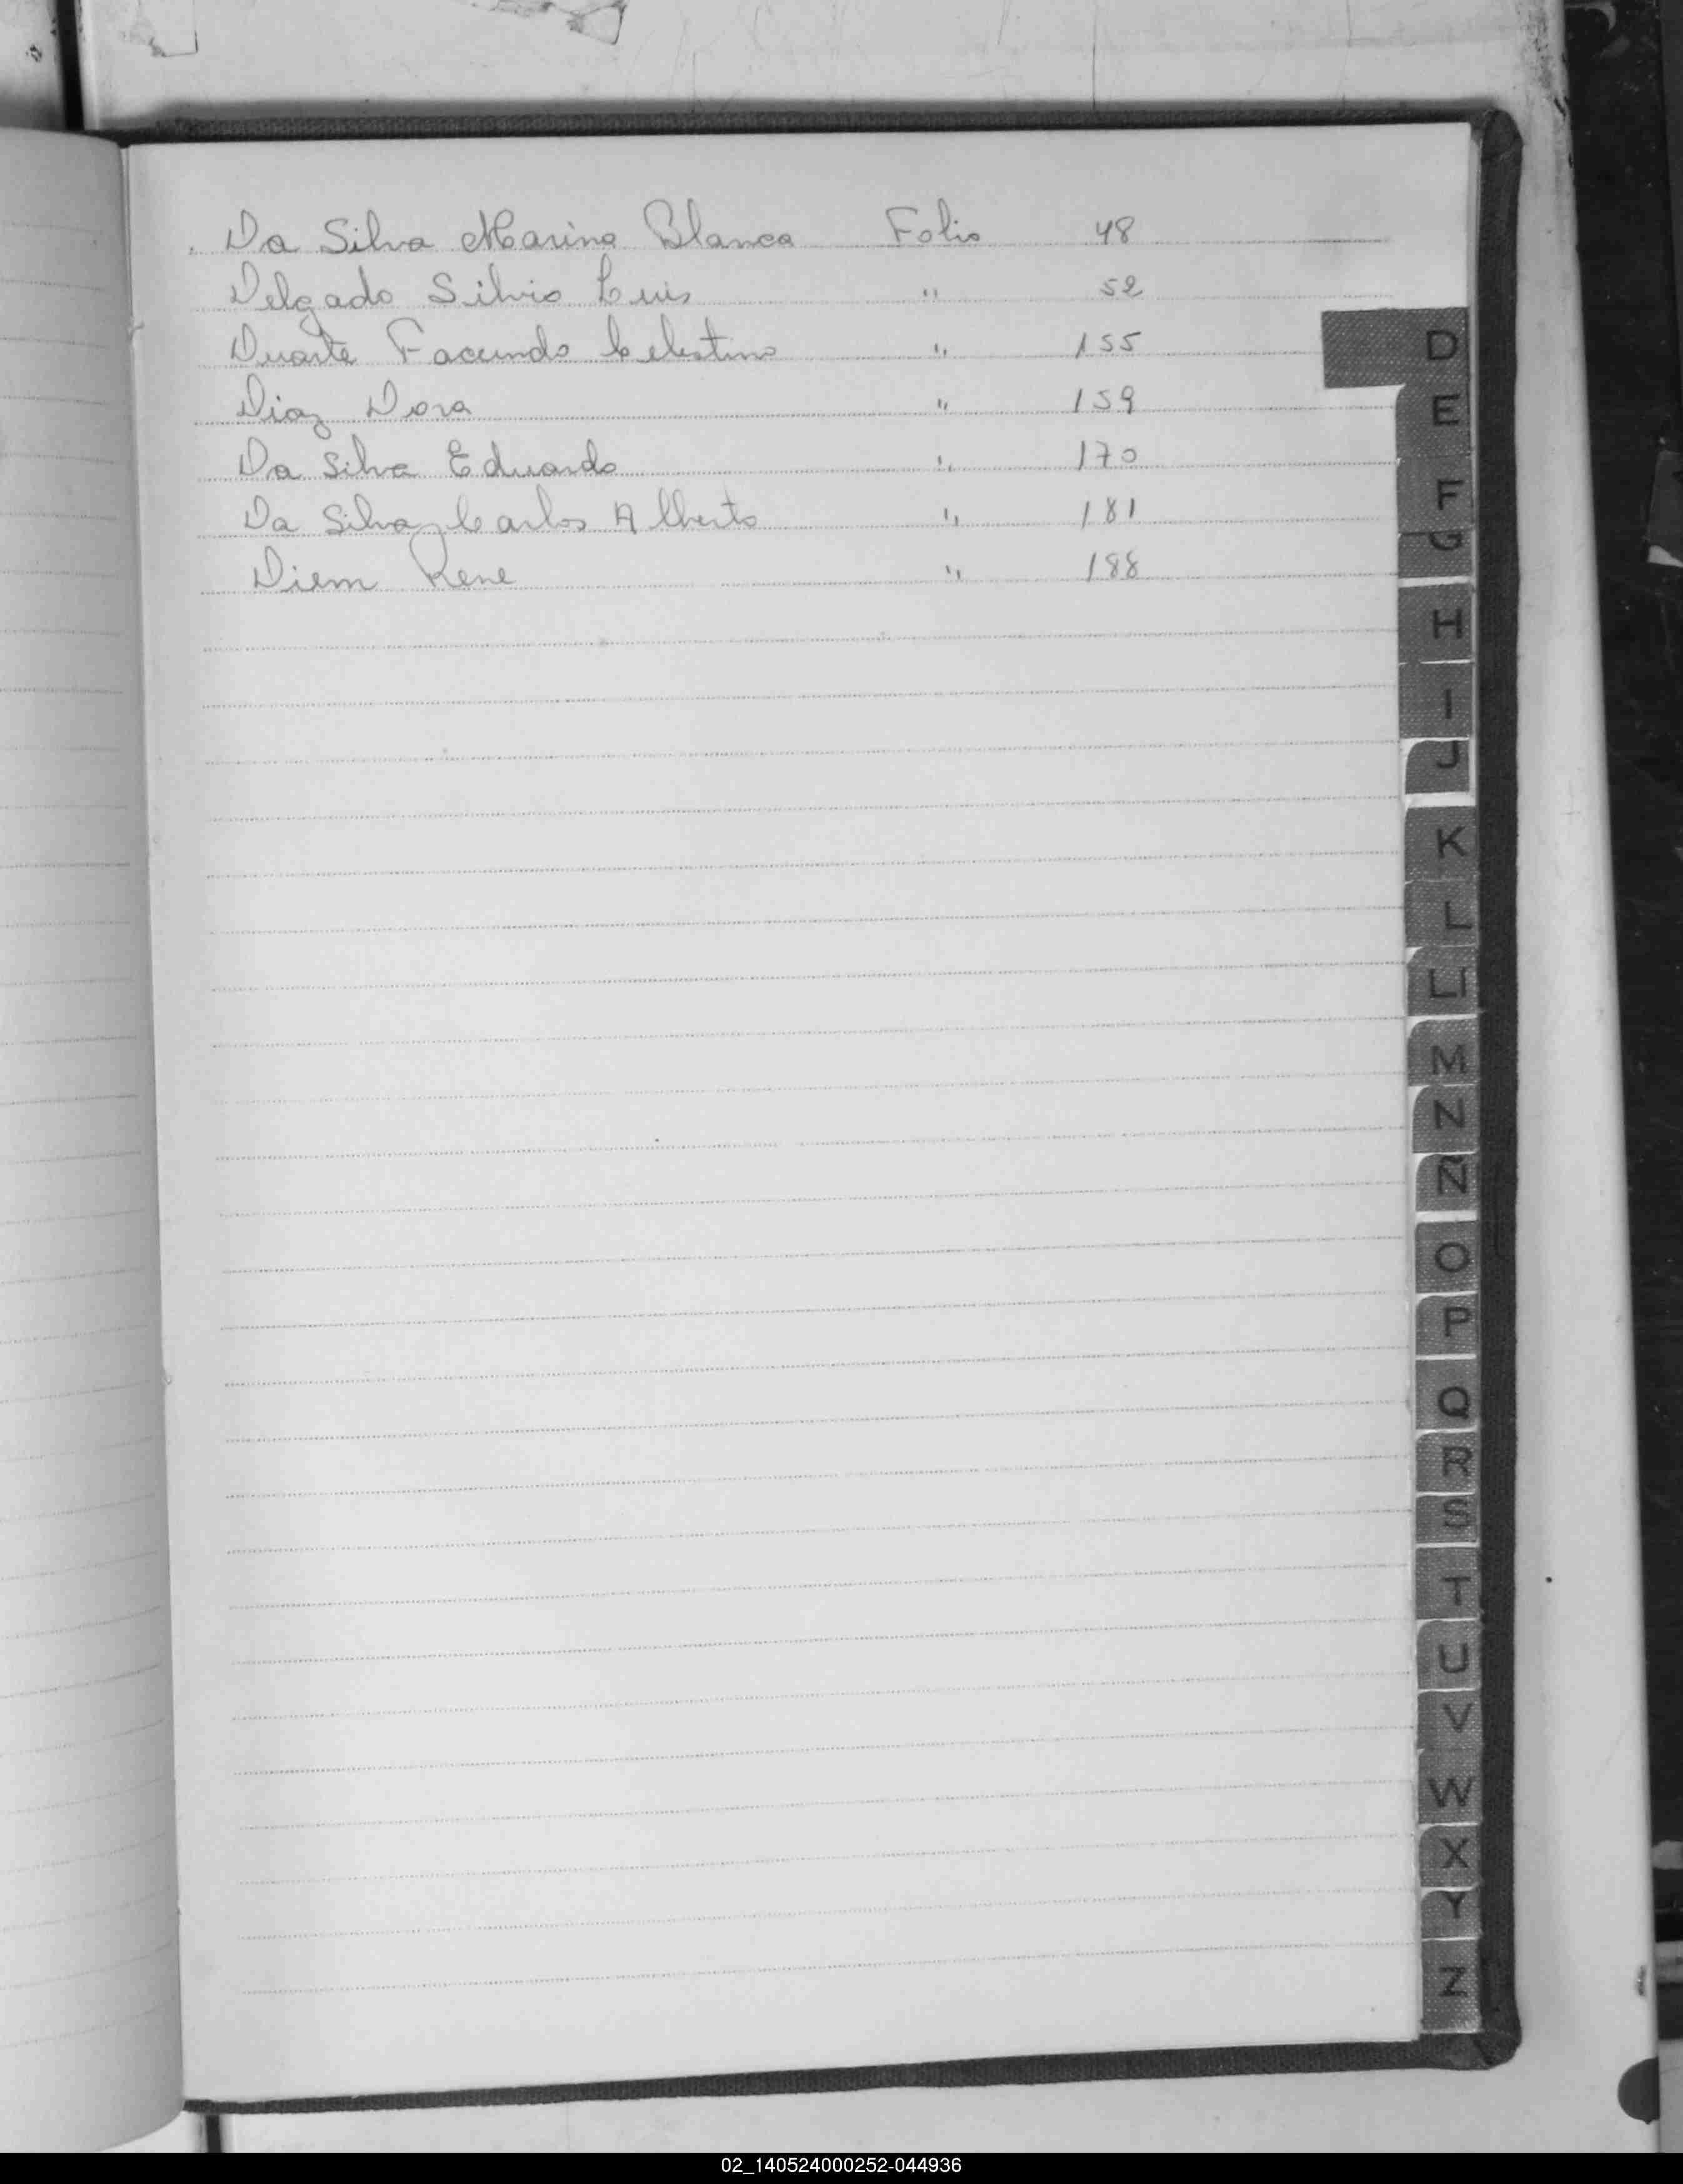 Da Silva Marina Blanca Folio 48
Delgado Silvio Luis " 52
Duarte Facundo Celestino " 155
Diaz Dora " 159
Da Silva Eduardo " 170
Da Silva, Carlos Alberto " 181
Diem Rene " 188
D
E
F
G
H
I
J
K
L
Ll
M
N
Ñ
O
P
Q
R
S
T
U
V
W
X
Y
Z
02_140524000252-044936